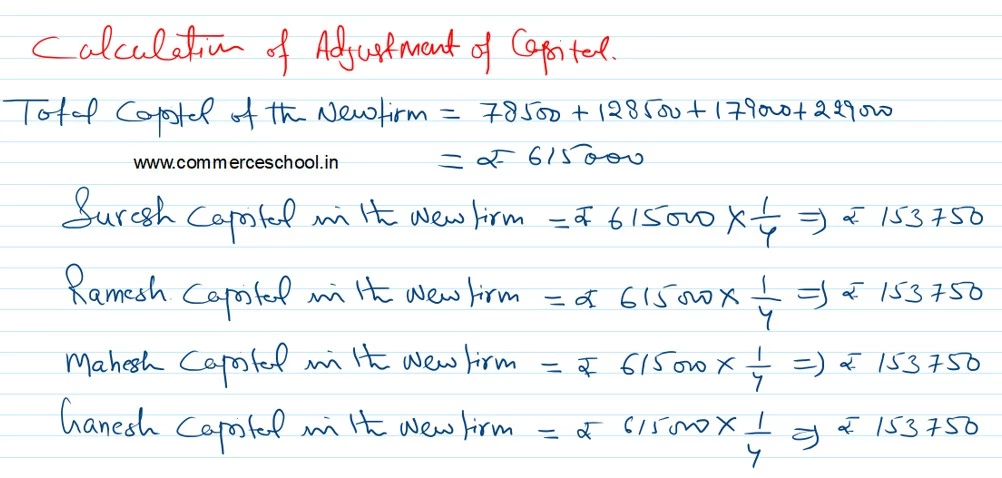 Calculation of Adjustment of Capital.
Total Capital of the New firm = 78500 + 128500 + 179000 + 229000
www.commerceschool.in = ₹ 615000
Suresh Capital in the New firm = ₹ 615000 × 1/4 => ₹ 153750
Ramesh Capital in the New firm = ₹ 615000 × 1/4 => ₹ 153750
Mahesh Capital in the New firm = ₹ 615000 × 1/4 => ₹ 153750
Ganesh Capital in the New firm = ₹ 615000 × 1/4 => ₹ 153750